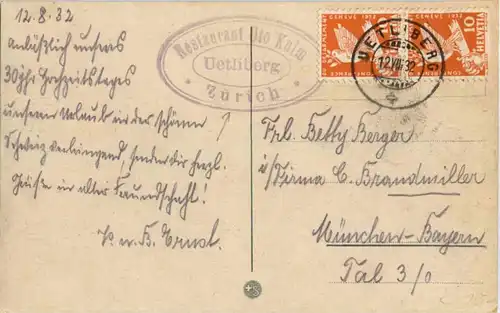 12.8.32
Anläßlich unseres
30jhr. Hochzeitstages
unseren Urlaub in der schönen
Schweiz verbringend, senden Dir herzl.
Grüße in alter Freundschaft!
H. u. B. Ernst.
Restaurant Uto Kulm
Uetliberg
Zürich
GENÈVE 1932
GENÈVE 1932
10
HELVETIA
UETLIBERG
12.VIII.32
Frl. Betty Berger
i/Firma C. Brandmiller
München-Bayern
Tal 3/0